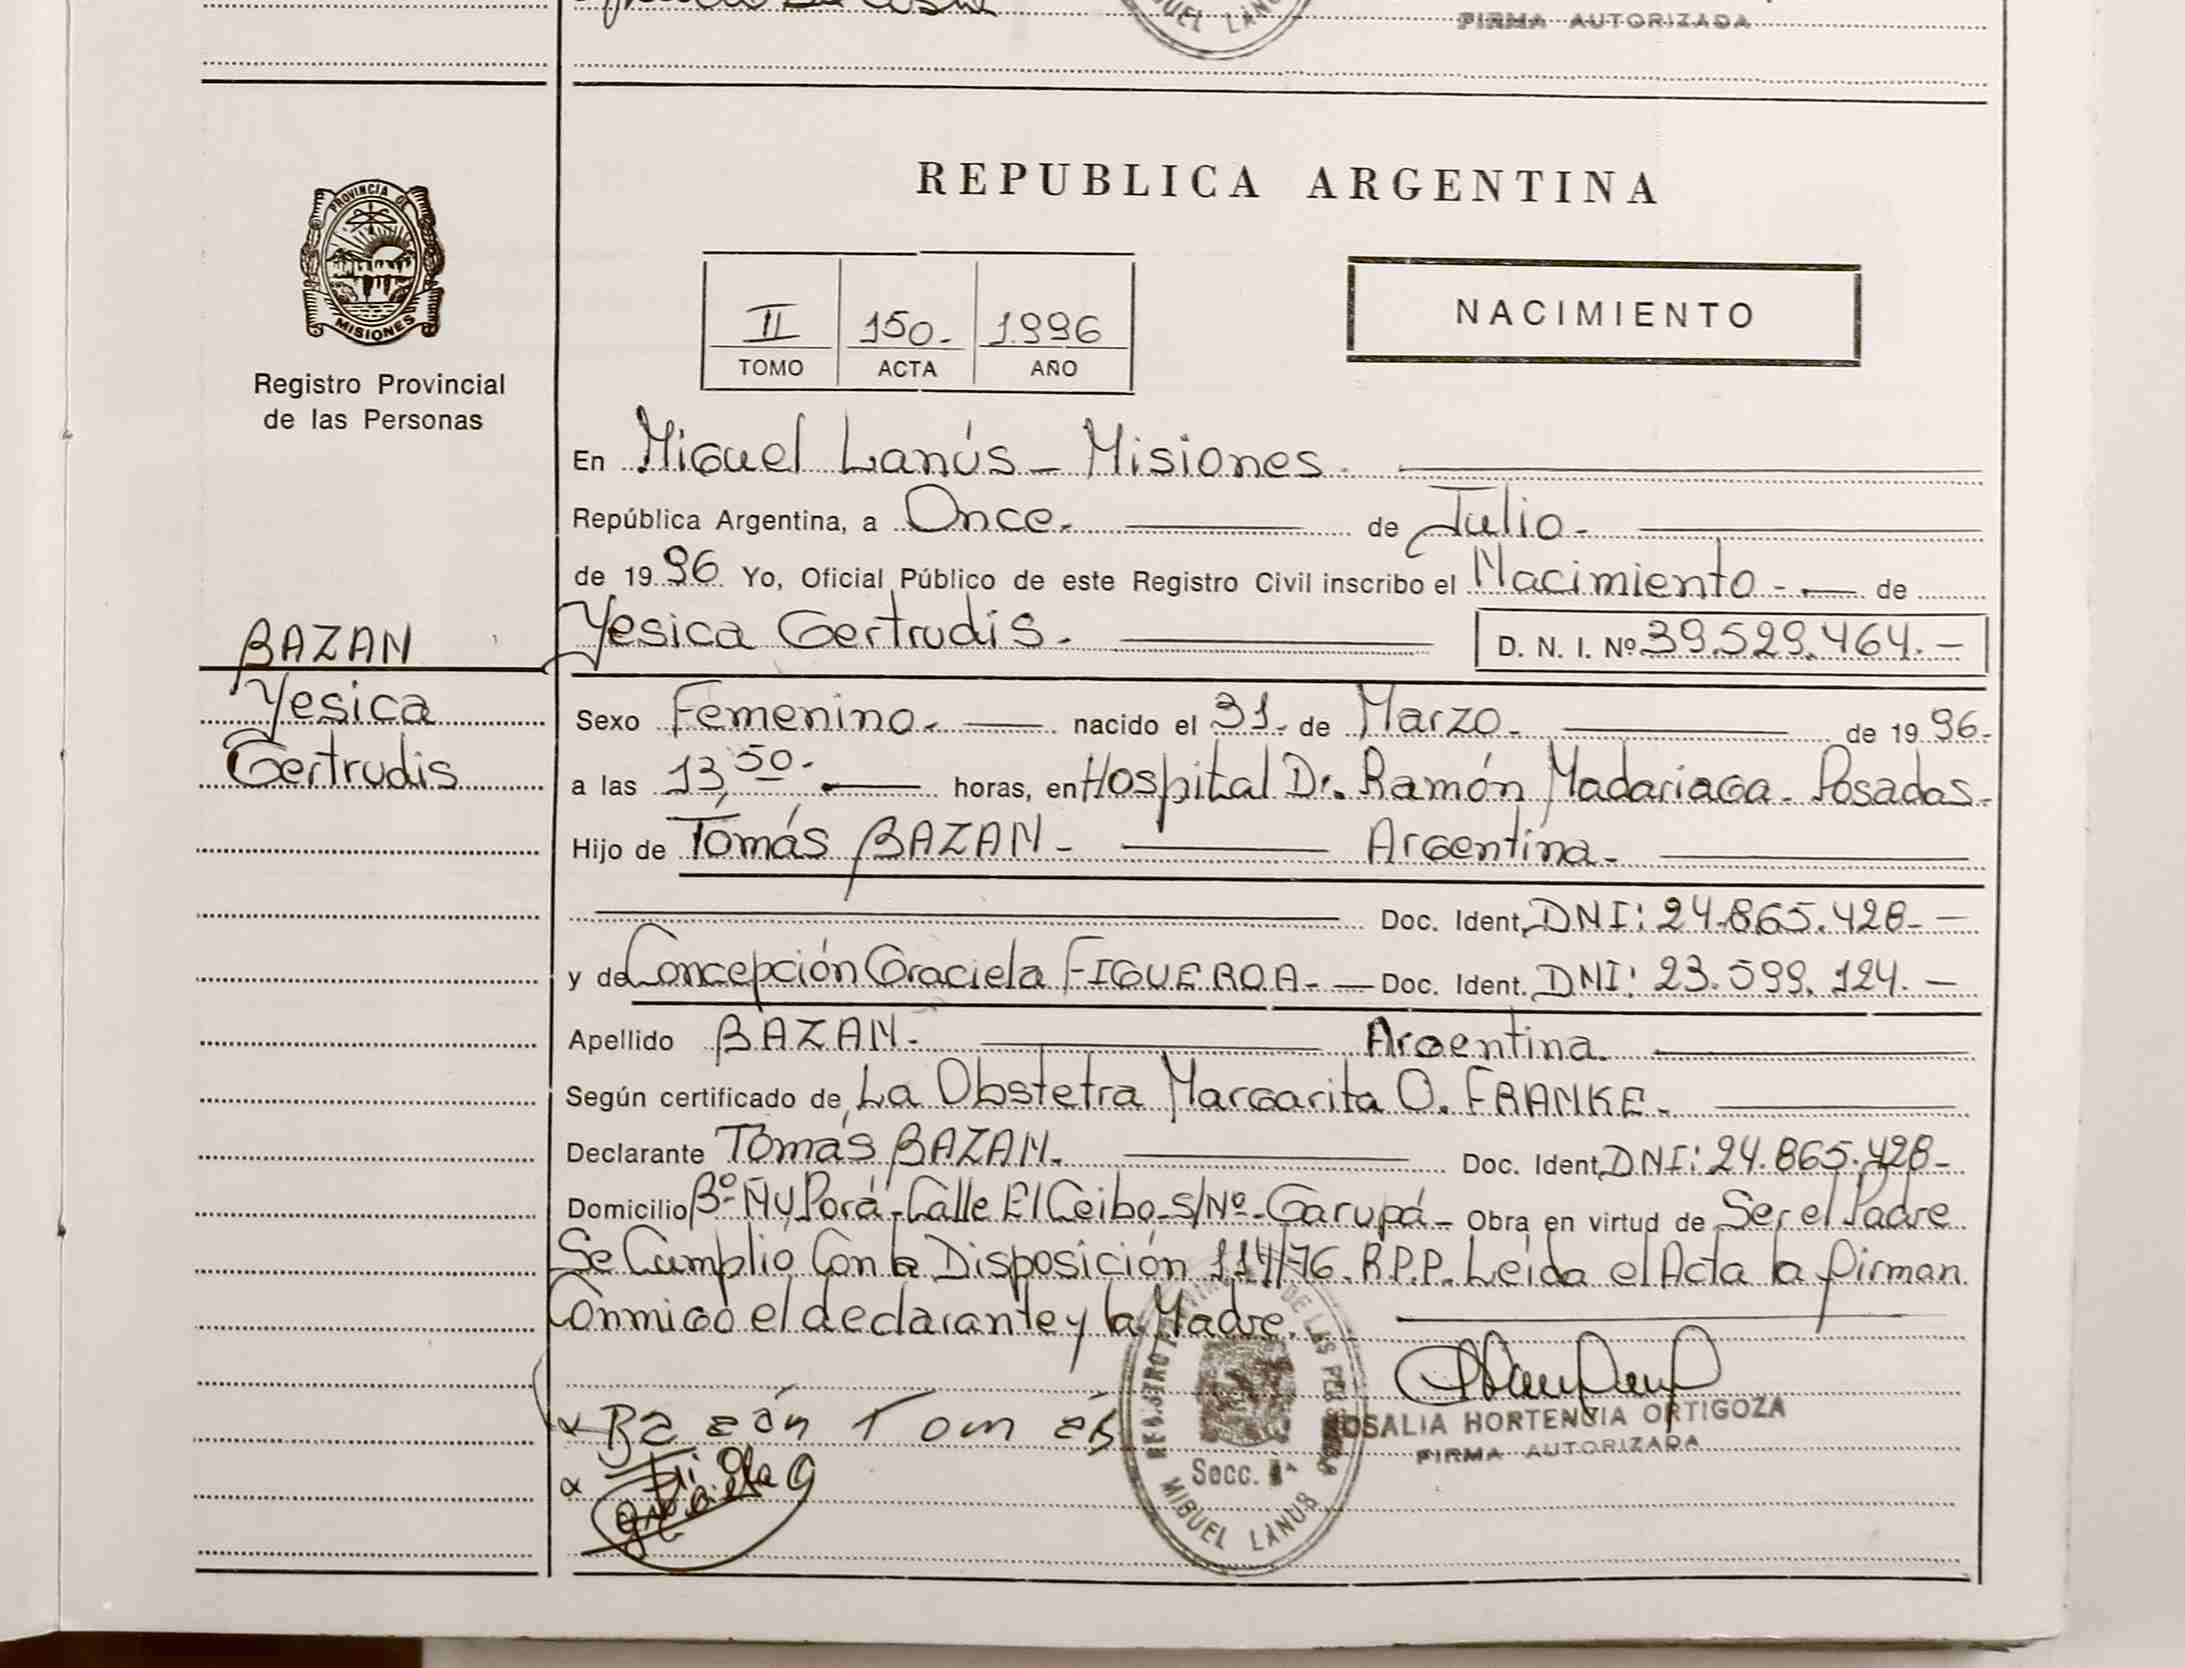 MIGUEL LANUS
FIRMA AUTORIZADA
PROVINCIA DE
MISIONES
Registro Provincial
de las Personas
REPUBLICA ARGENTINA
II 150.- 1.996
TOMO ACTA AÑO
NACIMIENTO
En Miguel Lanús - Misiones.
República Argentina, a Once. de Julio.
de 19 96 Yo, Oficial Público de este Registro Civil inscribo el Nacimiento. - de
BAZAN
Yesica
Gertrudis
Yesica Gertrudis. D. N. I. Nº 39.529.464.-
Sexo Femenino. nacido el 31. de Marzo. de 19 96.
a las 13,50. horas, en Hospital Dr. Ramón Madariaga - Posadas.
Hijo de Tomás BAZAN - Argentina.
Doc. Ident. DNI: 24.865.428.-
y de Concepción Graciela FIGUEROA. - Doc. Ident. DNI: 23.599.124.-
Apellido BAZAN. Argentina.
Según certificado de La Obstetra Margarita O. FRANKE.
Declarante Tomás BAZAN. Doc. Ident. DNI: 24.865.428-
Domicilio Bº Ñu Porá - Calle El Ceibo - S/Nº - Garupá - Obra en virtud de Ser el Padre
Se Cumplió Con la Disposición 114/76. R.P.P. Leída el Acta la firman
Conmigo el declarante y la Madre.
Bazán Tomás
ROSALIA HORTENCIA ORTIGOZA
FIRMA AUTORIZADA
Secc. 1ª
MIGUEL LANUS